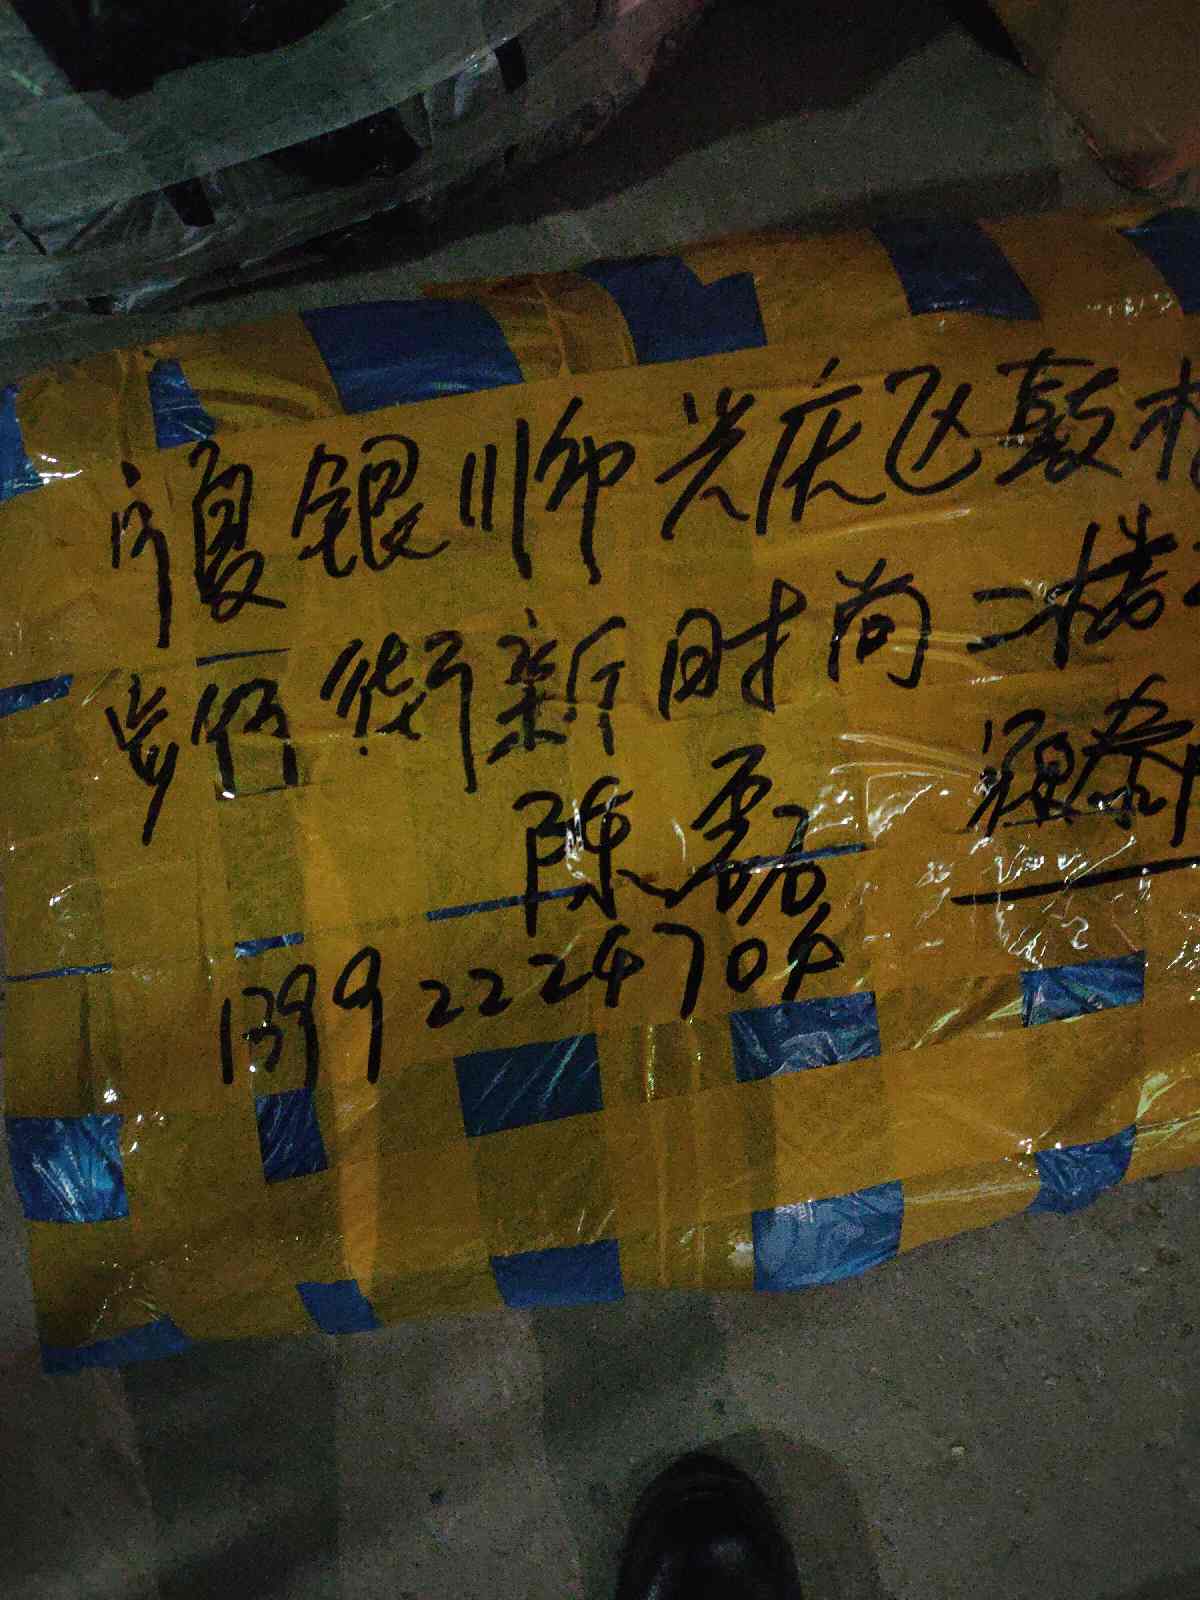 宁夏银川市兴庆区鼓楼
步行街新时尚二楼
程泰
陈磊
13992224704